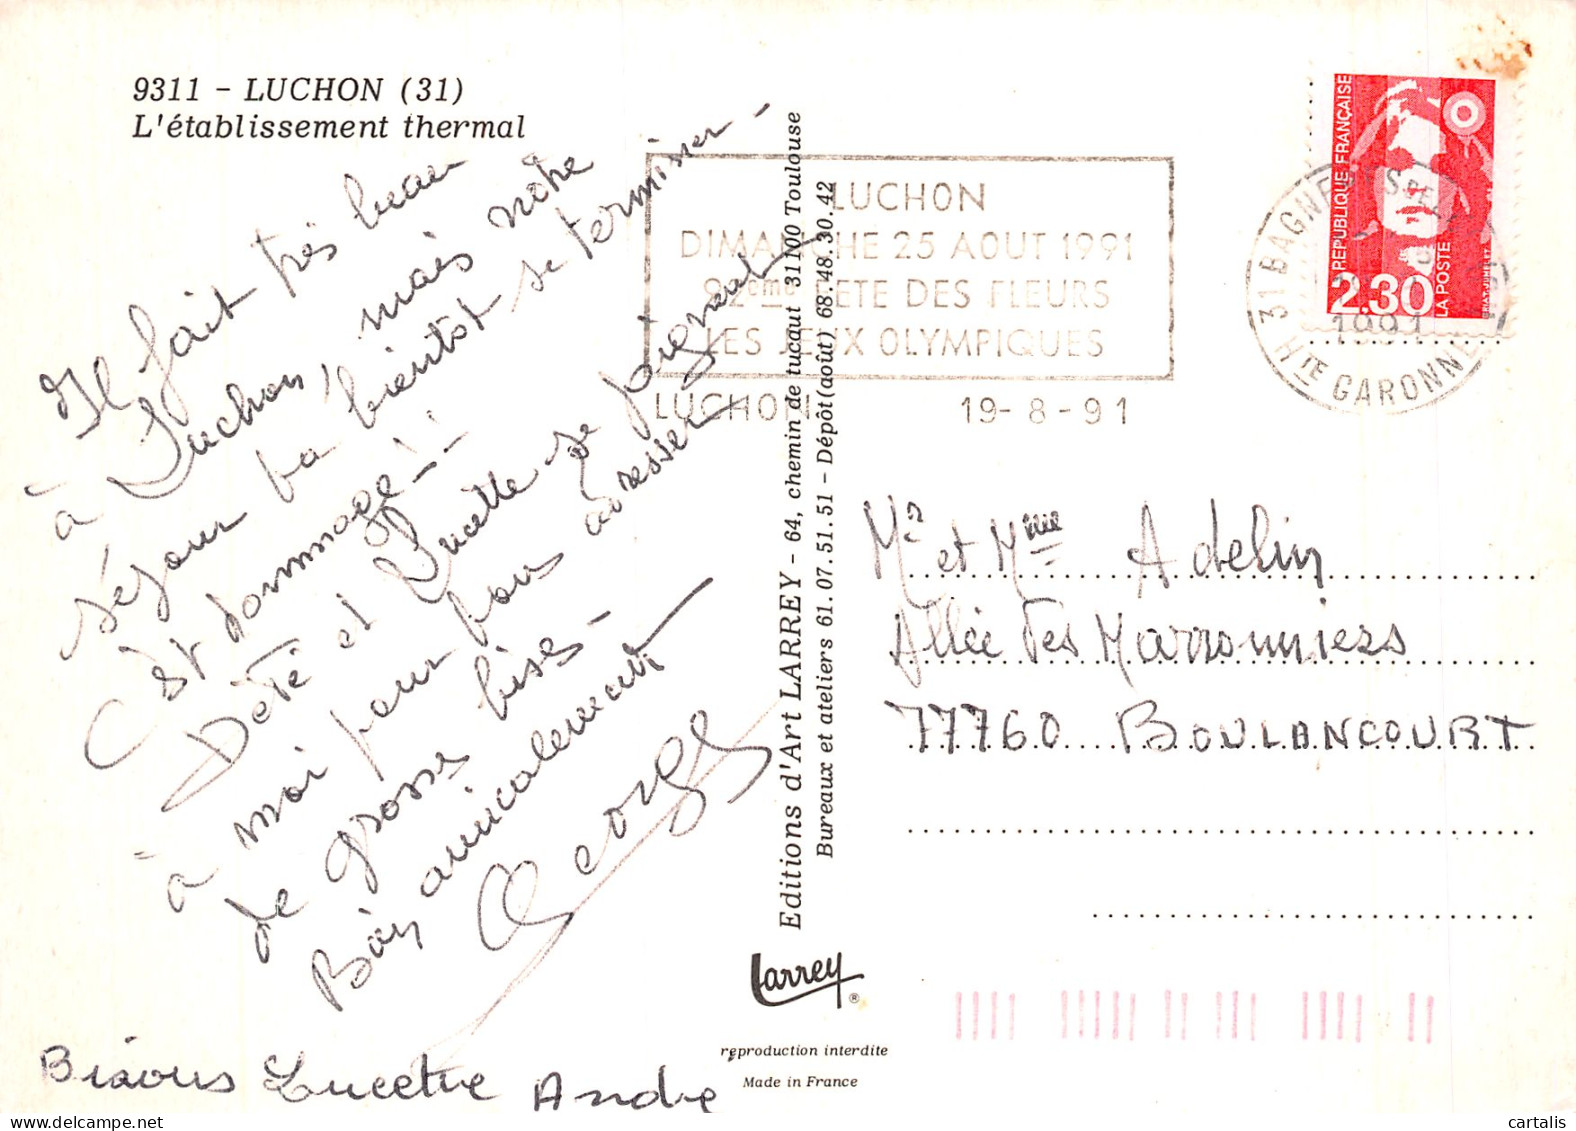 9311 - LUCHON (31)
L'établissement thermal
Il fait très beau
à Luchon, mais notre
séjour va bientôt se terminer -
C'est dommage !!
Dété et Lucette se joignent
à moi pour vous adresser
de grosses bises -
Bien amicalement
Georges
Bisous Lucette André
LUCHON
DIMANCHE 25 AOUT 1991
92eme FETE DES FLEURS
LES JEUX OLYMPIQUES
LUCHON 19-8-91
REPUBLIQUE FRANÇAISE
2.30
LA POSTE
31 BAGNERES DE
1991
HTE GARONNE
Editions d'Art LARREY - 64, chemin de tucaut 31100 Toulouse
Bureaux et ateliers 61.07.51.51 - Dépôt (août) 68.48.30.42
Mr et Mme Adelin
Allée des Marronniers
77760 BOULANCOURT
Larrey
®
reproduction interdite
Made in France
cartalis